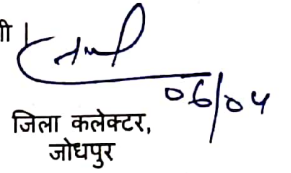 ी
06/04
जिला कलेक्टर,
जोधपुर